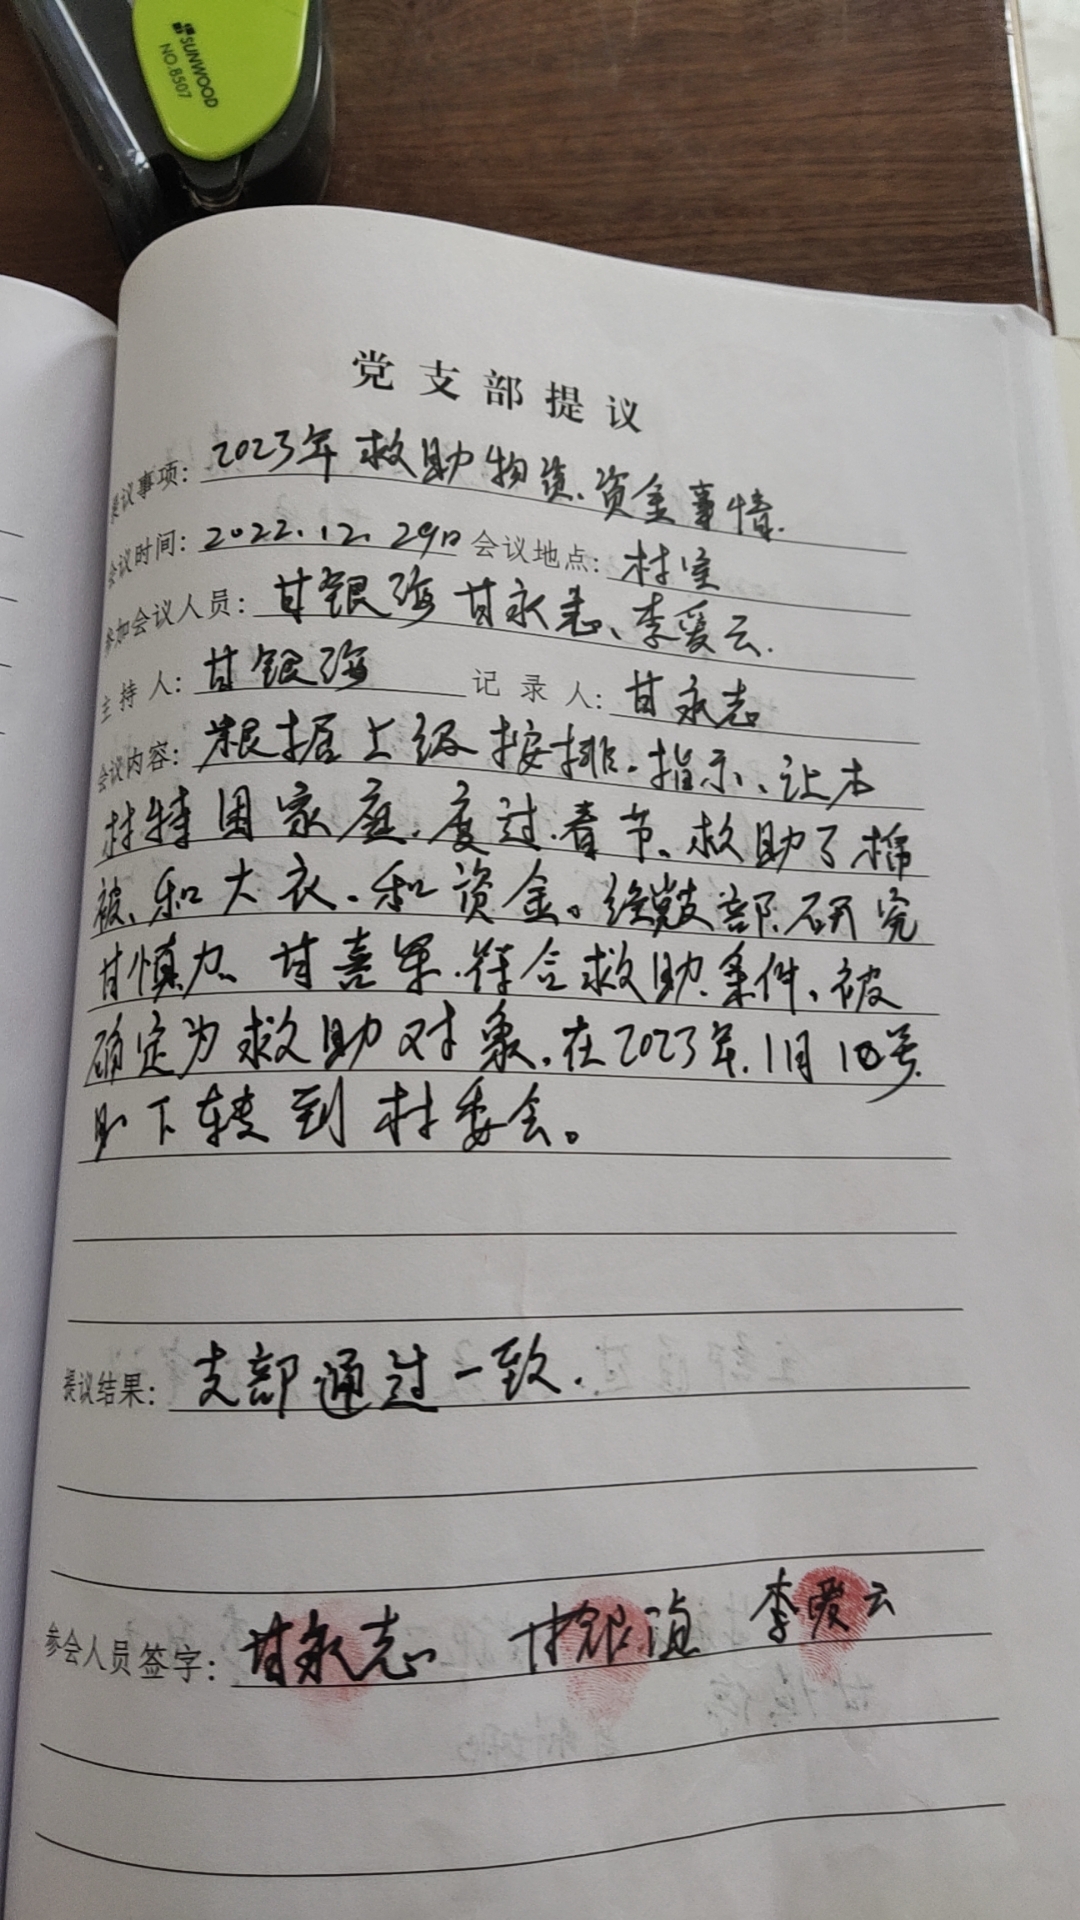 SUNWOOD
NO.8507
党支部提议
提议事项: 2023年救助物资、资金事情.
会议时间: 2022.12.29日 会议地点: 村室
参加会议人员: 甘银海 甘永志、李爱云.
主持人: 甘银海 记录人: 甘永志
会议内容: 根据上级按排.指示、让本
村特困家庭.度过.春节、救助了棉
被、和大衣.和资金。经党支部.研究
甘慎力、甘喜军.符合救助条件、被
确定为救助对象.在2023年.1月10号.
下转到村委会。
提议结果: 支部通过一致.
参会人员签字: 甘永志 甘银海 李爱云